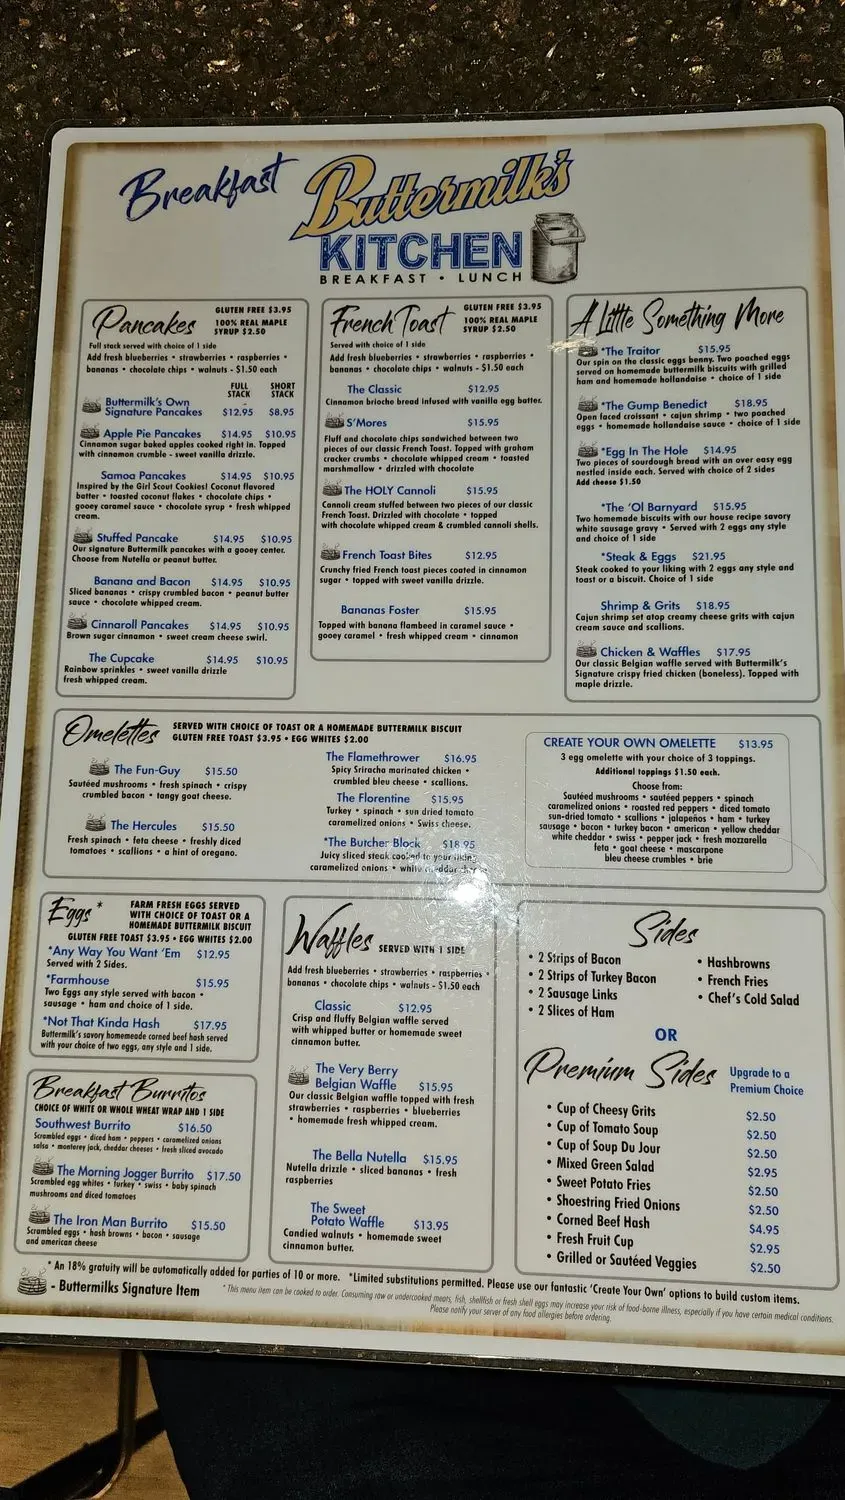 Breakfast
Buttermilk's
KITCHEN
BREAKFAST • LUNCH
Pancakes
GLUTEN FREE $3.95
100% REAL MAPLE
SYRUP $2.50
Full stack served with choice of 1 side
Add fresh blueberries • strawberries • raspberries •
bananas • chocolate chips • walnuts - $1.50 each
FULL STACK SHORT STACK
Buttermilk's Own
Signature Pancakes $12.95 $8.95
Apple Pie Pancakes $14.95 $10.95
Cinnamon sugar baked apples cooked right in. Topped
with cinnamon crumble - sweet vanilla drizzle.
Samoa Pancakes $14.95 $10.95
Inspired by the Girl Scout Cookies! Coconut flavored
batter • toasted coconut flakes • chocolate chips •
gooey caramel sauce • chocolate syrup • fresh whipped
cream.
Stuffed Pancake $14.95 $10.95
Our signature Buttermilk pancakes with a gooey center.
Choose from Nutella or peanut butter.
Banana and Bacon $14.95 $10.95
Sliced bananas • crispy crumbled bacon • peanut butter
sauce • chocolate whipped cream.
Cinnaroll Pancakes $14.95 $10.95
Brown sugar cinnamon • sweet cream cheese swirl.
The Cupcake $14.95 $10.95
Rainbow sprinkles • sweet vanilla drizzle
fresh whipped cream.
French Toast
GLUTEN FREE $3.95
100% REAL MAPLE
SYRUP $2.50
Served with choice of 1 side
Add fresh blueberries • strawberries • raspberries •
bananas • chocolate chips • walnuts - $1.50 each
The Classic $12.95
Cinnamon brioche bread infused with vanilla egg batter.
S'Mores $15.95
Fluff and chocolate chips sandwiched between two
pieces of our classic French Toast. Topped with graham
cracker crumbs • chocolate whipped cream • toasted
marshmallow • drizzled with chocolate
The HOLY Cannoli $15.95
Cannoli cream stuffed between two pieces of our classic
French Toast. Drizzled with chocolate • topped
with chocolate whipped cream & crumbled cannoli shells.
French Toast Bites $12.95
Crunchy fried French toast pieces coated in cinnamon
sugar • topped with sweet vanilla drizzle.
Bananas Foster $15.95
Topped with banana flambeed in caramel sauce •
gooey caramel • fresh whipped cream • cinnamon
A Little Something More
*The Traitor $15.95
Our spin on the classic eggs benny. Two poached eggs
served on homemade buttermilk biscuits with grilled
ham and homemade hollandaise • choice of 1 side
*The Gump Benedict $18.95
Open faced croissant • cajun shrimp • two poached
eggs • homemade hollandaise sauce • choice of 1 side
*Egg In The Hole $14.95
Two pieces of sourdough bread with an over easy egg
nestled inside each. Served with choice of 2 sides
Add cheese $1.50
*The 'Ol Barnyard $15.95
Two homemade biscuits with our house recipe savory
white sausage gravy • Served with 2 eggs any style
and choice of 1 side
*Steak & Eggs $21.95
Steak cooked to your liking with 2 eggs any style and
toast or a biscuit. Choice of 1 side
Shrimp & Grits $18.95
Cajun shrimp set atop creamy cheese grits with cajun
cream sauce and scallions.
Chicken & Waffles $17.95
Our classic Belgian waffle served with Buttermilk's
Signature crispy fried chicken (boneless). Topped with
maple drizzle.
Omelettes
SERVED WITH CHOICE OF TOAST OR A HOMEMADE BUTTERMILK BISCUIT
GLUTEN FREE TOAST $3.95 • EGG WHITES $2.00
The Fun-Guy $15.50
Sautéed mushrooms • fresh spinach • crispy
crumbled bacon • tangy goat cheese.
The Hercules $15.50
Fresh spinach • feta cheese • freshly diced
tomatoes • scallions • a hint of oregano.
The Flamethrower $16.95
Spicy Sriracha marinated chicken •
crumbled bleu cheese • scallions.
The Florentine $15.95
Turkey • spinach • sun dried tomato
caramelized onions • Swiss cheese.
*The Butcher Block $18.95
Juicy sliced steak cooked to your liking
caramelized onions • white cheddar
CREATE YOUR OWN OMELETTE $13.95
3 egg omelette with your choice of 3 toppings.
Additional toppings $1.50 each.
Choose from:
Sautéed mushrooms • sautéed peppers • spinach
caramelized onions • roasted red peppers • diced tomato
sun-dried tomato • scallions • jalapeños • ham • turkey
sausage • bacon • turkey bacon • american • yellow cheddar
white cheddar • swiss • pepper jack • fresh mozzarella
feta • goat cheese • mascarpone
bleu cheese crumbles • brie
Eggs*
FARM FRESH EGGS SERVED
WITH CHOICE OF TOAST OR A
HOMEMADE BUTTERMILK BISCUIT
GLUTEN FREE TOAST $3.95 • EGG WHITES $2.00
*Any Way You Want 'Em $12.95
Served with 2 Sides.
*Farmhouse $15.95
Two Eggs any style served with bacon •
sausage • ham and choice of 1 side.
*Not That Kinda Hash $17.95
Buttermilk's savory homemeade corned beef hash served
with your choice of two eggs, any style and 1 side.
Breakfast Burritos
CHOICE OF WHITE OR WHOLE WHEAT WRAP AND 1 SIDE
Southwest Burrito $16.50
Scrambled eggs • diced ham • peppers • caramelized onions
salsa • monterey jack, cheddar cheeses • fresh sliced avocado
The Morning Jogger Burrito $17.50
Scrambled egg whites • turkey • swiss • baby spinach
mushrooms and diced tomatoes
The Iron Man Burrito $15.50
Scrambled eggs • hash browns • bacon • sausage
and american cheese
Waffles SERVED WITH 1 SIDE
Add fresh blueberries • strawberries • raspberries •
bananas • chocolate chips • walnuts - $1.50 each
Classic $12.95
Crisp and fluffy Belgian waffle served
with whipped butter or homemade sweet
cinnamon butter.
The Very Berry
Belgian Waffle $15.95
Our classic Belgian waffle topped with fresh
strawberries • raspberries • blueberries
• homemade fresh whipped cream.
The Bella Nutella $15.95
Nutella drizzle • sliced bananas • fresh
raspberries
The Sweet
Potato Waffle $13.95
Candied walnuts • homemade sweet
cinnamon butter.
Sides
• 2 Strips of Bacon
• 2 Strips of Turkey Bacon
• 2 Sausage Links
• 2 Slices of Ham
• Hashbrowns
• French Fries
• Chef's Cold Salad
OR
Premium Sides
Upgrade to a
Premium Choice
• Cup of Cheesy Grits $2.50
• Cup of Tomato Soup $2.50
• Cup of Soup Du Jour $2.50
• Mixed Green Salad $2.95
• Sweet Potato Fries $2.50
• Shoestring Fried Onions $2.50
• Corned Beef Hash $4.95
• Fresh Fruit Cup $2.95
• Grilled or Sautéed Veggies $2.50
* An 18% gratuity will be automatically added for parties of 10 or more. *Limited substitutions permitted. Please use our fantastic 'Create Your Own' options to build custom items.
- Buttermilks Signature Item
* This menu item can be cooked to order. Consuming raw or undercooked meats, fish, shellfish or fresh shell eggs may increase your risk of food-borne illness, especially if you have certain medical conditions.
Please notify your server of any food allergies before ordering.